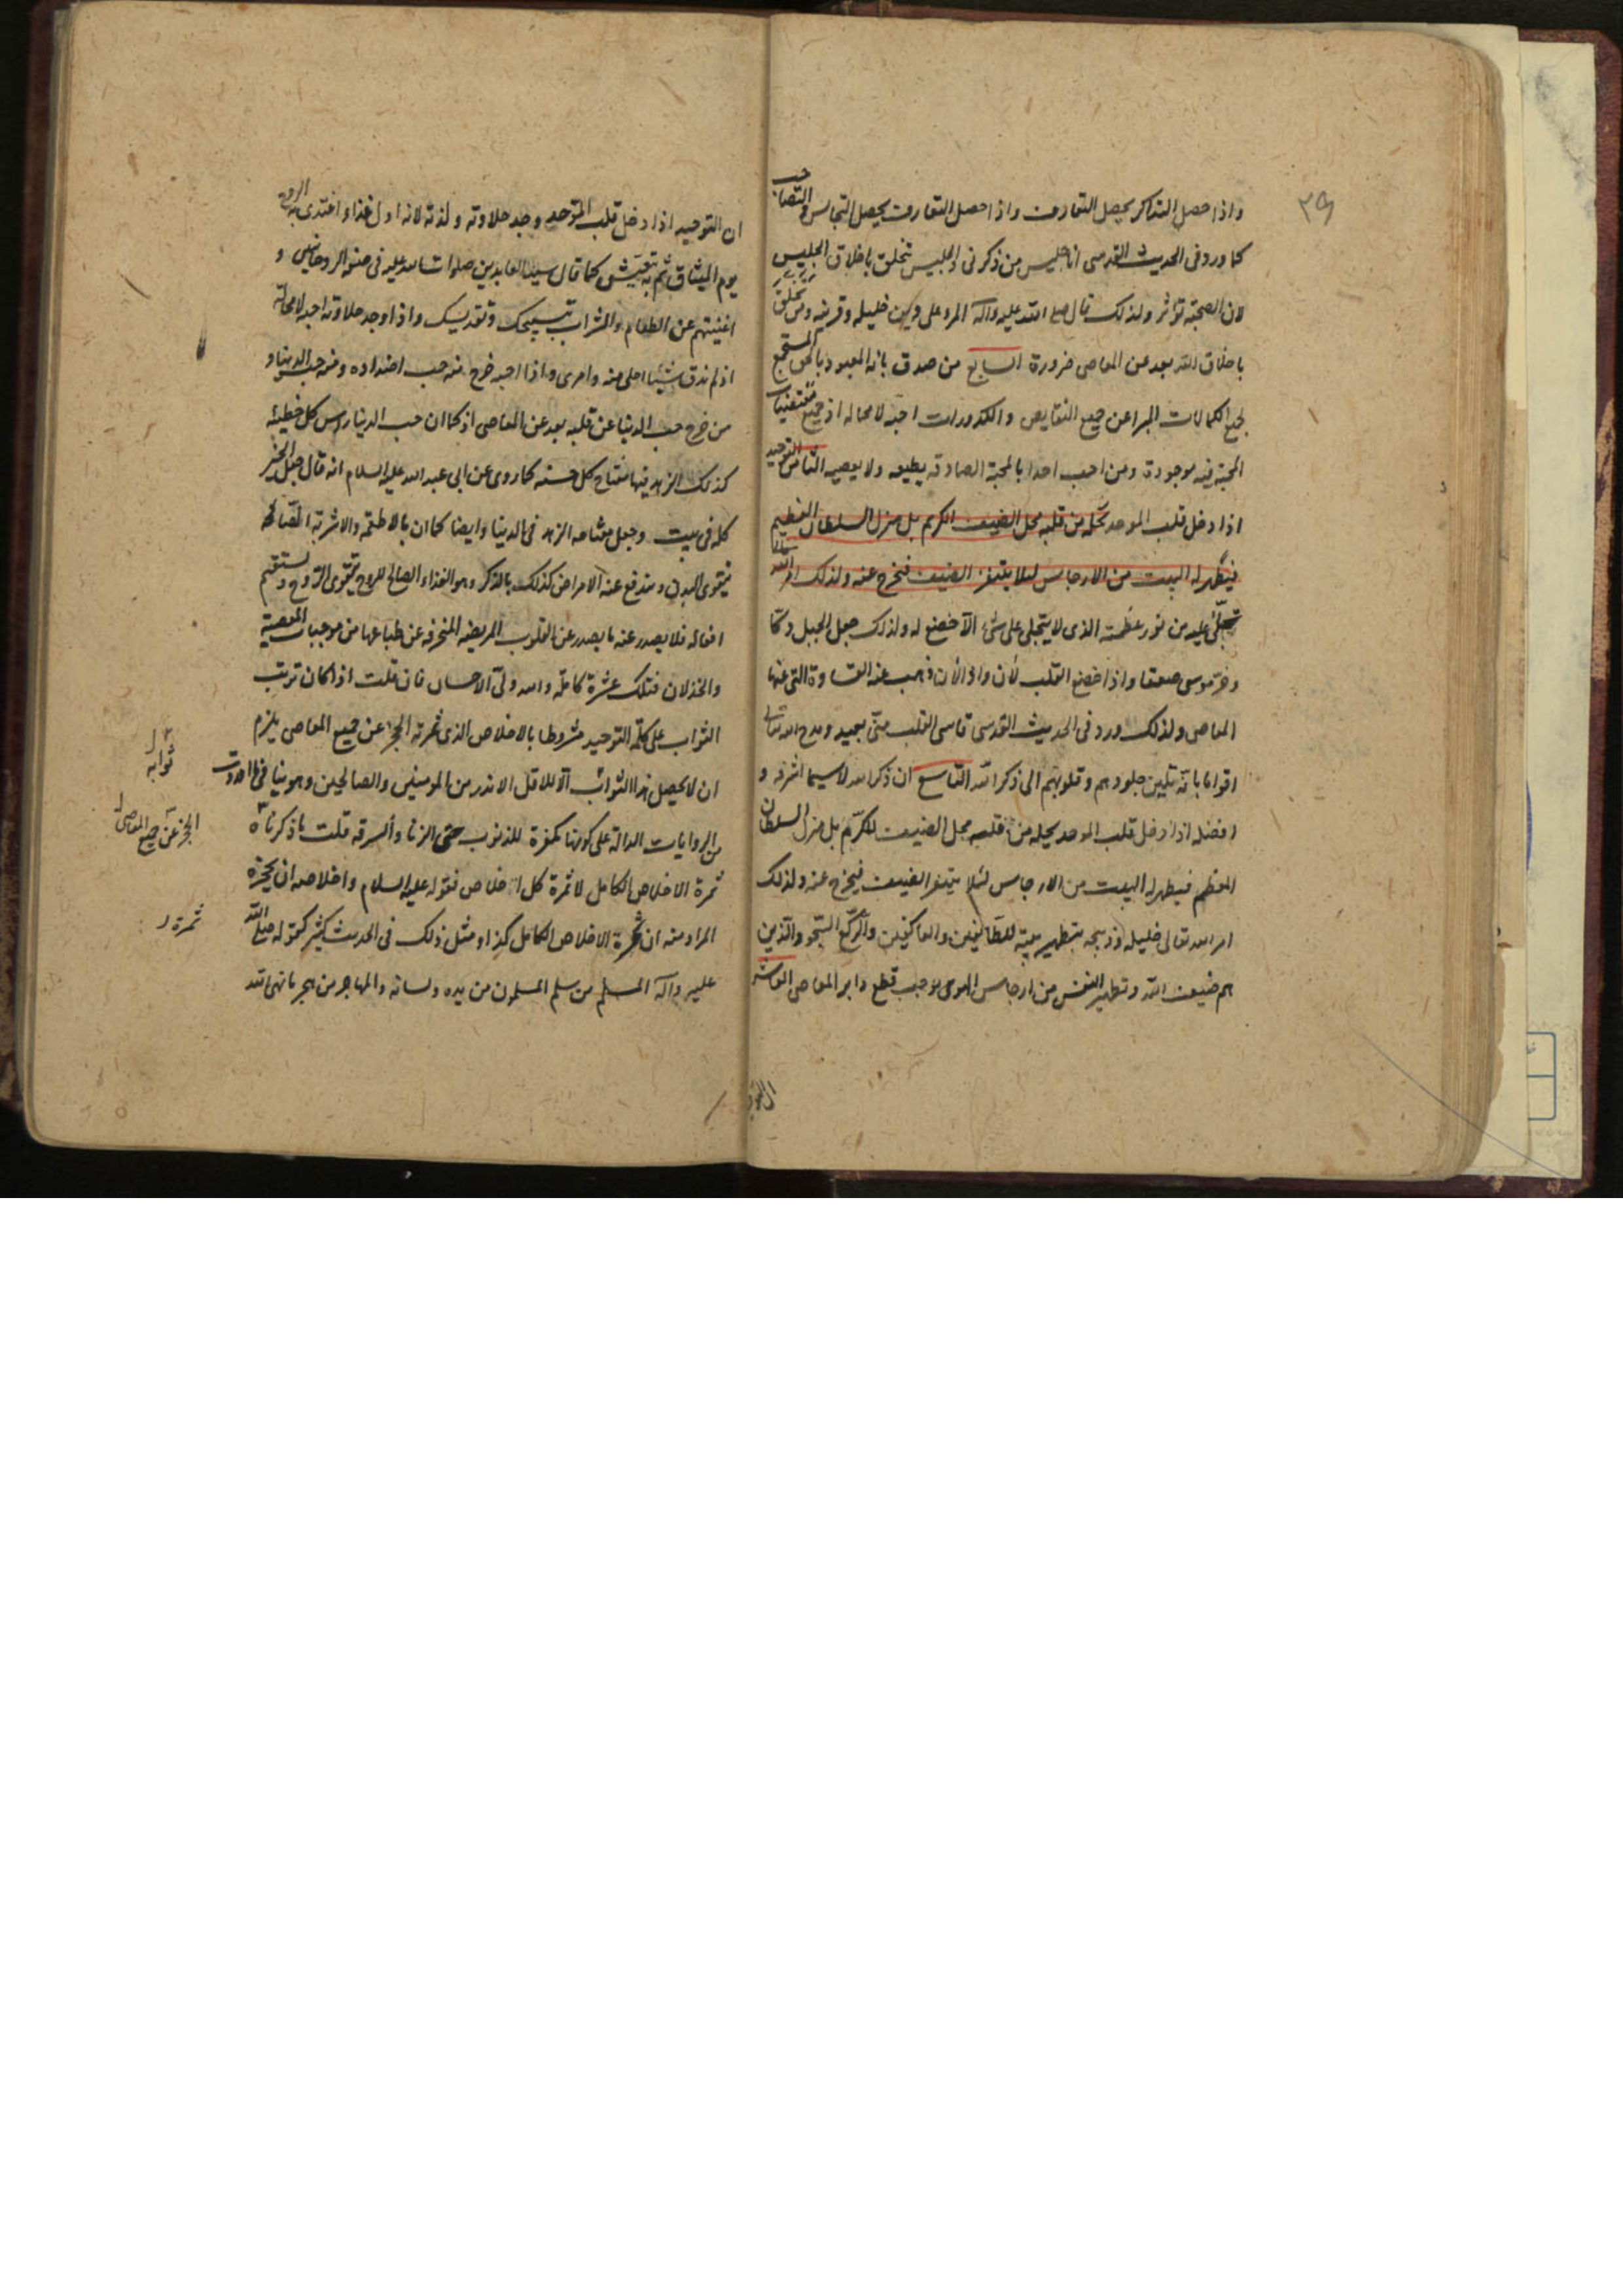 ٣٩
واذا حصل التذاكر يحصل التعارف واذا حصل التعارف يحصل التجالس والتصاحب
كما ورد فى الحديث القدسى انا جليس من ذكرنى والجليس تتخلق باخلاق الجليس
لان الصحبة تؤثر ولذلك قال صلى الله عليه وآله المرء على دين خليله وقرينه ومن تخلق
باخلاق الله بعد عن المعاصى ضرورة السابع من صدق بانه المعبود بالحق المستجمع
لجميع الكمالات المبرا عن جميع النقايص والكدورات احبه لا محاله اذ جميع مقتضيات
المحبة فيه موجودة ومن احب احدا بالمحبة الصادقه يطيعه ولا يعصيه الثامن التوحيد
اذا دخل قلب الموحد تحله من قلبه محل الضيف الكريم بل منزل السلطان العظيم
فيطهر له البيت من الارجاس ليلا يتنفر الضيف فيخرج عنه ولذلك امر الله
تجلى عليه من نور عظمته الذى لا يتجلى على شئ الا خضع له ولذلك جعل الجبل دكا
وخر موسى صعقا واذا خضع القلب لان واذا لان ذهب عنه القساوة التى عنها
المعاصى ولذلك ورد فى الحديث القدسى قاسى القلب منى بعيد ومدح الله تعالى
اقواما بانه تلين جلودهم وقلوبهم الى ذكر الله التاسع ان ذكر الله لاسيما اشرفه و
افضله اذا دخل قلب الموحد يحله من قلبه محل الضيف المكرم بل منزل السلطان
المعظم فيطهر له البيت من الارجاس لئلا يتنفر الضيف فيخرج عنه ولذلك
امر الله تعالى خليله وذبيحه بتطهير بيته للطائفين والعاكفين والركع السجود الذين
هم ضيف الله وتطهير النفس من ارجاس الهوى يوجب قطع دابر المعاصى العاشر
ان التوحيد اذا دخل قلب الموحد وجد حلاوته ولذته لانه اول غذاء اغتذى به الروح
يوم الميثاق ثم به تعيش كما قال سيد العابدين صلوات الله عليه فى صفة الروحانيين و
اغنيتهم عن الطعام والشراب بتسبيحك وتقديسك واذا وجد حلاوته احبه لا محالة
اذ لم يذق شيئا احلى منه وامرى واذا احبه خرج منه حب اضداده ومنه حب الدنيا و
من خرج حب الدنيا عن قلبه بعد عن المعاصى اذ كما ان حب الدنيا راس كل خطيئه
كذلك الزهد فيها مفتاح كل حسنه كما روى عن ابى عبد الله عليه السلام انه قال جعل الخير
كله فى بيت وجعل مفتاحه الزهد فى الدنيا وايضا كما ان بالاطعمه والاشربة الصالحه
يتقوى البدن ويندفع عنه الامراض كذلك بالذكر وهو الغذاء الصالح للروح يتقوى الروح ويستقيم
افعاله فلا يصدر عنه ما يصدر عن القلوب المريضه المنحرفه عن طباعها من موجبات المعصية
والخذلان فتلك عشرة كاملة والله ولى الاحسان فان قلت اذا كان ترتب
الثواب على كلمة التوحيد مشروطا بالاخلاص الذى ثمرته الحجز عن جميع المعاصى يلزم
ان لا يحصل هذا الثواب الا للاقل الاندر من المومنين والصالحين وهو ينافى
من الروايات الدالة على كونها مكفرة للذنوب حتى الزنا والسرقه قلت ما ذكرناه
ثمرة الاخلاص الكامل لا ثمرة كل اخلاص فقوله عليه السلام واخلاصه ان يحجزه
المراد منه ان ثمرة الاخلاص الكامل كذا ومثل ذلك فى الحديث كثير كقوله صلى الله
عليه وآله المسلم من سلم المسلمون من يده ولسانه والمهاجر من هجر ما نهى الله
ثوابه
الحجز عن جميع المعاصى
ثمرة